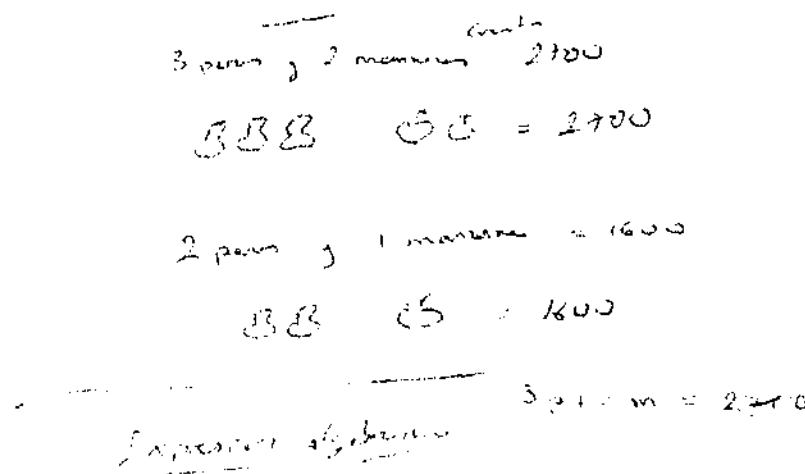 cuesta
3 peras y 2 manzanas 2700
= 2700
2 peras y 1 manzana = 1600
= 1600
3p + m = 2700
Expresión algebraica